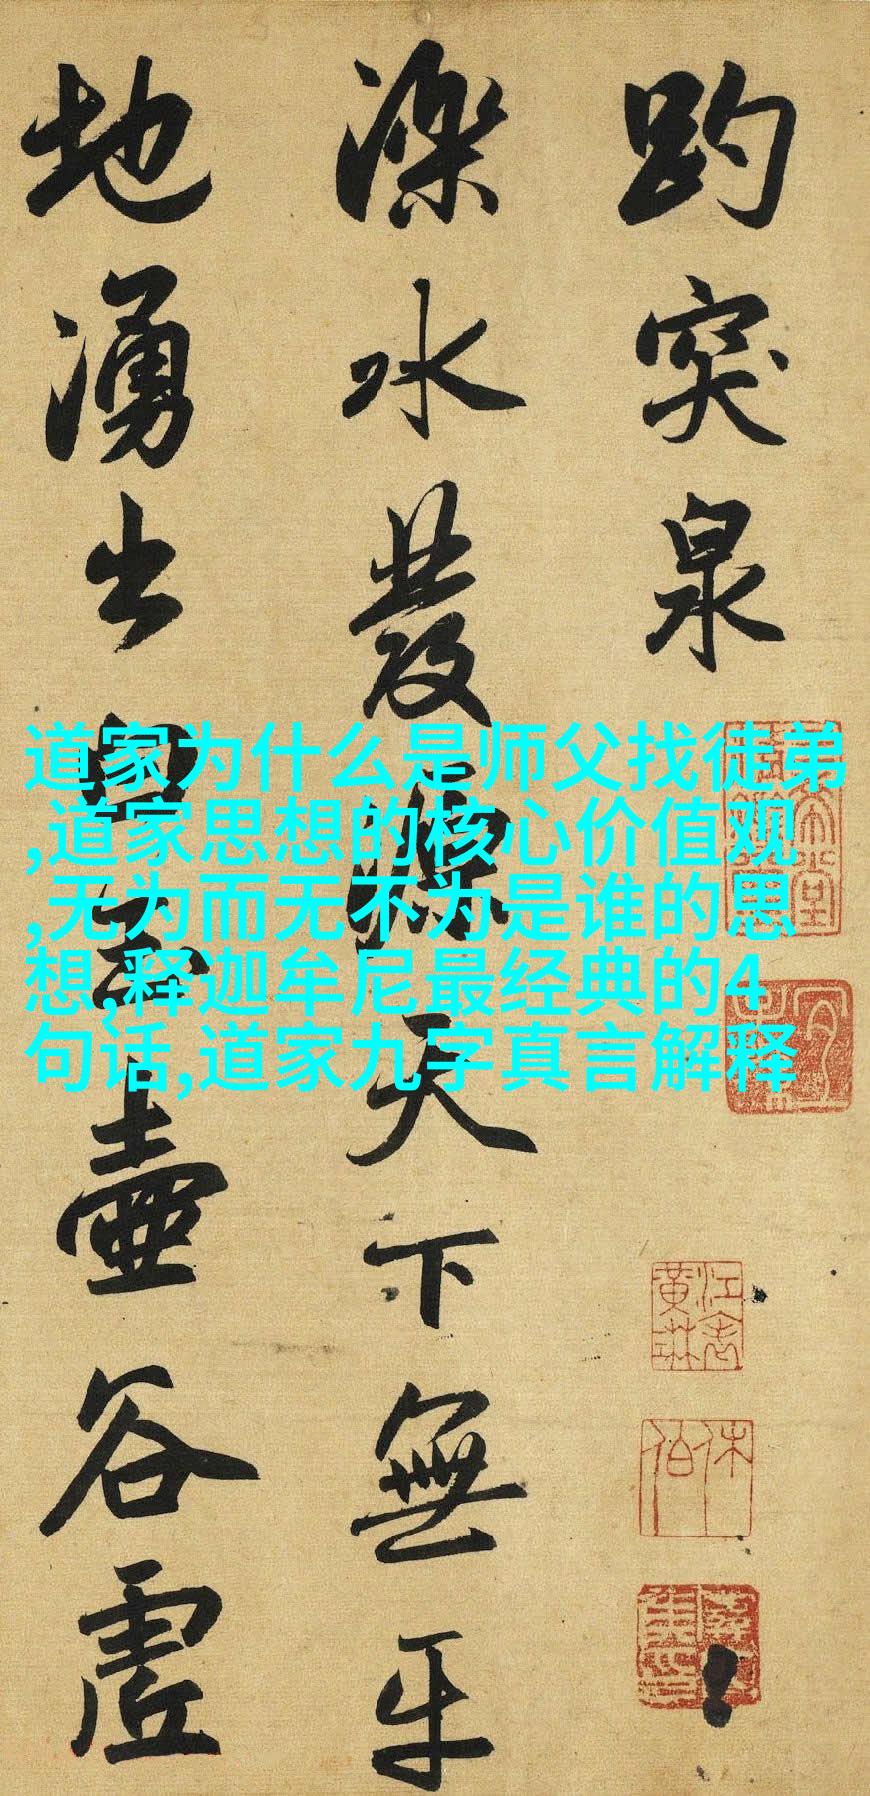 趵突泉
濼水發源天下無
平地湧出白玉壺
谷虛
道家为什么是师父找徒弟
,道家思想的核心价值观
,无为而无不为是谁的思
想,释迦牟尼最经典的4
句话,道家九字真言解释